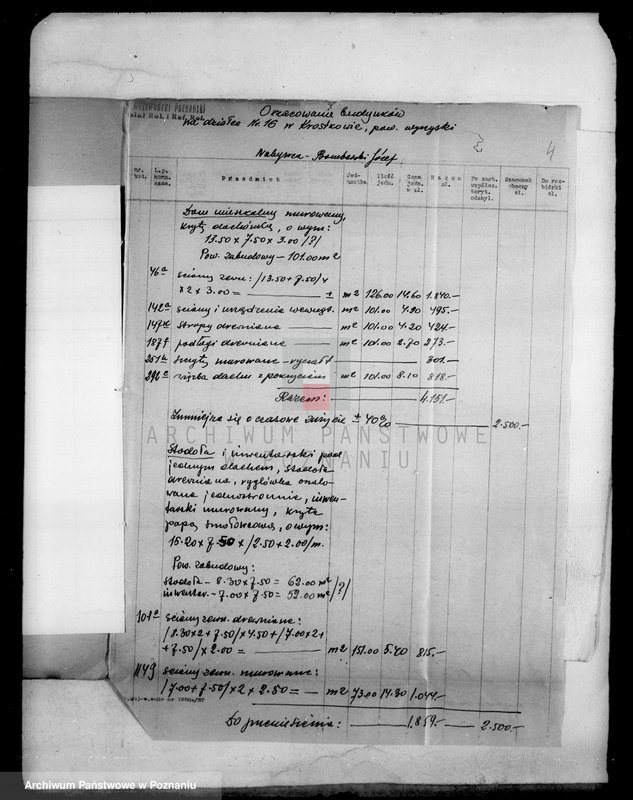 WOJEWÓDZKI POZNAŃSKI
Dział Rol. i Ref. Rol.
Oszacowanie budynków
na działce Nr. 16 w Krostkowie, pow. wyrzyski
4
Nabywca - Bomberski Józef.
nr. bud. L.p. norm. szac. Przedmiot Jednostka Ilość jedn. Cena jedn. w zł. Razem zł. Po zast. współcz. Szacunek obecny zł. Do rozbiórki zł.
Dom mieszkalny murowany,
kryty dachówką, o wym:
13.50 x 7.50 x 3.00 /?/
Pow. zabudowy - 101.00 m2
46a ściany zewn: /13.50 + 7.50/ x
82 x 3.00 = ± m2 126.00 14.60 1.840.-
142a ściany i urządzenia wewnęt. m2 101.00 4.90 495.-
147 stropy drewniane m2 101.00 4.20 424.-
187f podłogi drewniane m2 101.00 2.70 273.-
251 szczyty murowane - ryczałt 301.-
292c więźba dachu z pokryciem m2 101.00 8.10 818.-
Razem: 4.151.-
Zmniejsza się o czasowe zużycie ± 40% 2.500.-
ARCHIWUM PAŃSTWOWE
W POZNANIU
Stodoła i inwentarski pod
jednym dachem, stodoła
drewniana, ryglówka
jednostronnie, inwen-
tarski murowany, kryte
papą smołowcową, o wym:
15.20 x 7.50 x /2.50 + 2.00/m.
Pow. zabudowy:
stodoła - 8.30 x 7.50 = 62.00 m2
inwentar. - 7.00 x 7.50 = 52.00 m2 /?/
101a ściany zewn. drewniane:
/8.30x2 + 7.50/ x 4.50 + /7.00 x 2 +
+ 7.50/ x 2.00 = m2 151.00 5.40 815.-
114g ściany zewn. murowane:
/7.00 + 7.50/ x 2 x 2.50 = m2 73.00 14.30 1.044.-
Do przeniesienia: 1.859.- 2.500.-
Archiwum Państwowe w Poznaniu